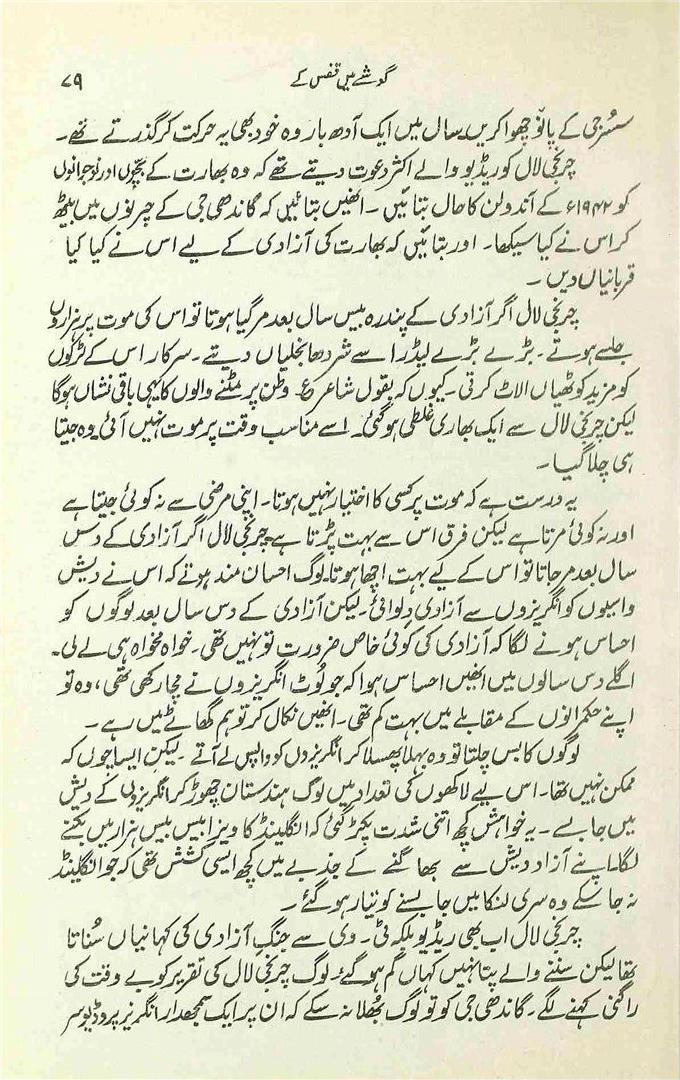 گوشے میں قفس کے ۷۹
سسُرجی کے پانوٴ چھوا کریں۔ سال میں ایک آدھ بار وہ خود بھی یہ حرکت کر گذرتے تھے۔
چرنجی لال کو ریڈیو والے اکثر دعوت دیتے تھے کہ وہ بھارت کے بچوں اور نوجوانوں
کو ۱۹۴۲ء کے آندولن کا حال بتائیں۔ انھیں بتائیں کہ گاندھی جی کے چرنوں میں بیٹھ
کر اس نے کیا سیکھا۔ اور بتائیں کہ بھارت کی آزادی کے لیے اس نے کیا کیا
قربانیاں دیں۔
چرنجی لال اگر آزادی کے پندرہ بیس سال بعد مر گیا ہوتا تو اس کی موت پر ہزاروں
جلسے ہوتے۔ بڑے بڑے لیڈر اسے شردھانجلیاں دیتے۔ سرکار اس کے لڑکوں
کو مزید کوٹھیاں الاٹ کرتی۔ کیوں کہ بقول شاعر ع۔ وطن پر مٹنے والوں کا یہی باقی نشاں ہوگا
لیکن چرنجی لال سے ایک بھاری غلطی ہو گئی۔ اسے مناسب وقت پر موت نہیں آئی۔ وہ جیتا
ہی چلا گیا۔
یہ درست ہے کہ موت پر کسی کا اختیار نہیں ہوتا۔ اپنی مرضی سے نہ کوئی جیتا ہے
اور نہ کوئی مرتا ہے لیکن فرق اس سے بہت پڑتا ہے۔ چرنجی لال اگر آزادی کے دس
سال بعد مر جاتا تو اس کے لیے بہت اچھا ہوتا۔ لوگ احسان مند ہوتے کہ اس نے دیش
واسیوں کو انگریزوں سے آزادی دلوائی۔ لیکن آزادی کے دس سال بعد لوگوں کو
احساس ہونے لگا کہ آزادی کی کوئی خاص ضرورت تو نہیں تھی۔ خواہ مخواہ ہی لے لی۔
اگلے دس سالوں میں انھیں احساس ہوا کہ جو لُوٹ انگریزوں نے مچا رکھی تھی، وہ تو
اپنے حکمرانوں کے مقابلے میں بہت کم تھی۔ انھیں نکال کر تو ہم گھاٹے میں رہے۔
لوگوں کا بس چلتا تو وہ بہلا پھسلا کر انگریزوں کو واپس لے آتے۔ لیکن ایسا چوں کہ
ممکن نہیں تھا۔ اس لیے لاکھوں کی تعداد میں لوگ ہندستان چھوڑ کر انگریزوں کے دیش
میں جا بسے۔ یہ خواہش کچھ اتنی شدت پکڑ گئی کہ انگلینڈ کا ویزا بیس بیس ہزار میں بکنے
لگا۔ اپنے آزاد دیش سے بھاگنے کے جذبے میں کچھ ایسی کشش تھی کہ جو انگلینڈ
نہ جا سکے وہ سری لنکا میں جا بسنے کو تیار ہو گئے۔
چرنجی لال اب بھی ریڈیو بلکہ ٹی۔ وی سے جنگ آزادی کی کہانیاں سُناتا
تھا لیکن سننے والے پتا نہیں کہاں گم ہو گئے۔ لوگ چرنجی لال کی تقریر کو بے وقت کی
راگنی کہنے لگے۔ گاندھی جی کو تو لوگ بھُلا نہ سکے کہ ان پر ایک سمجھدار انگریز پروڈیوسر